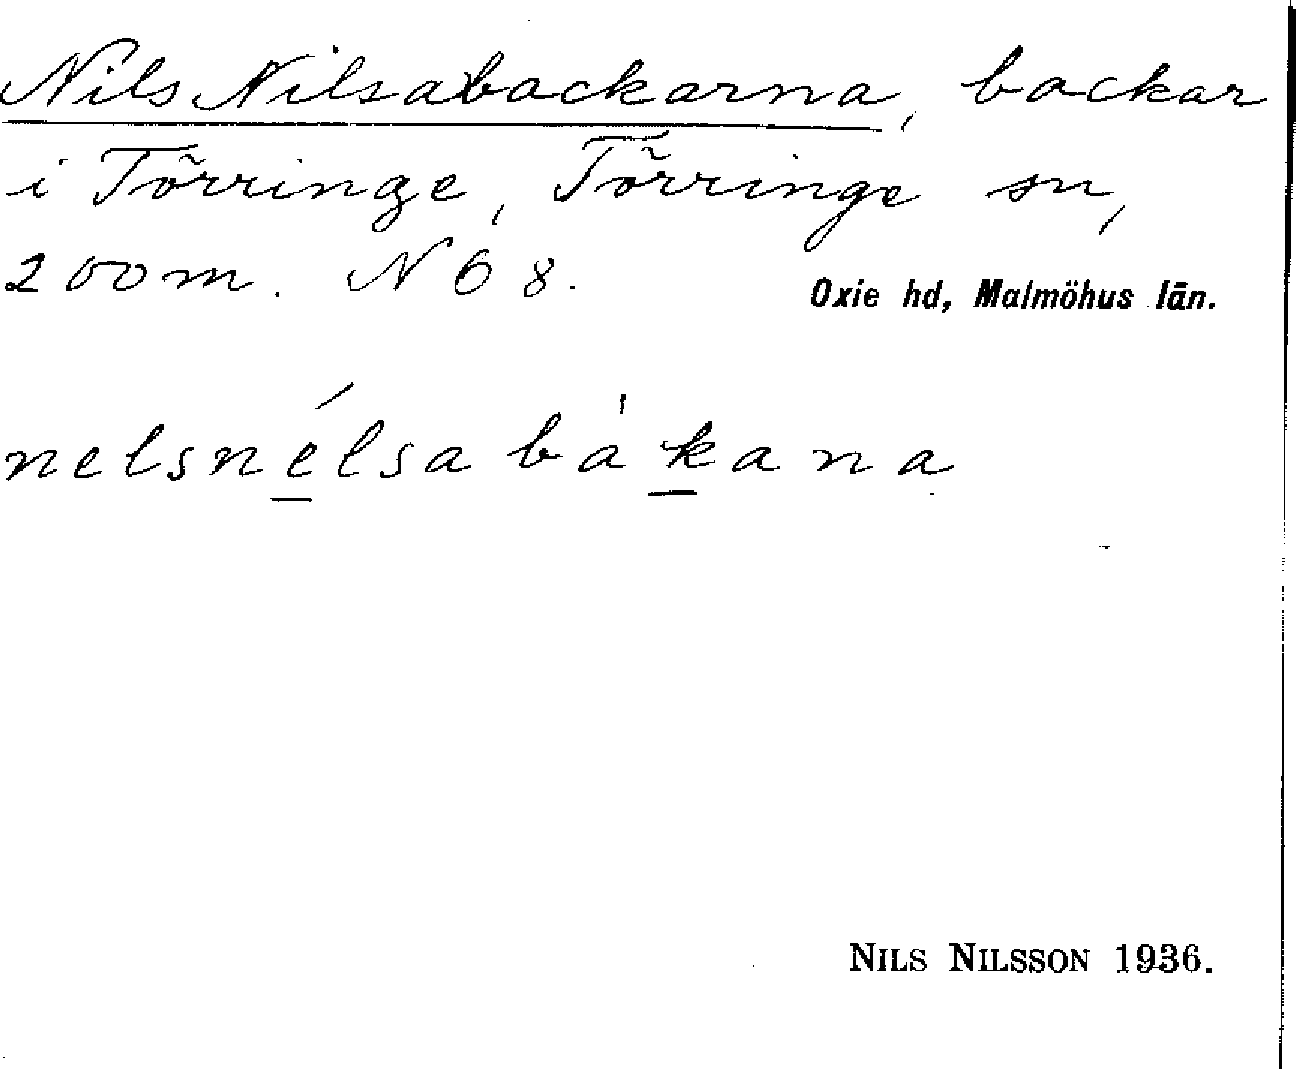 Nils Nilsabackarna, backar
i Törringe, Törringe sn,
200m. N 68.
Oxie hd, Malmöhus län.
nelsnélsabákana
NILS NILSSON 1936.